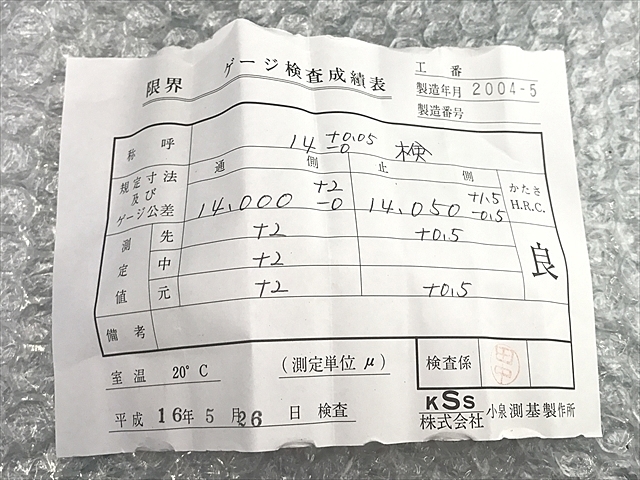 限界 ゲージ検査成績表
工番
製造年月 2004-5
製造番号
称呼 14 +0.05 -0 検
規定寸法及びゲージ公差
通側 14,000 +2 -0
止側 14,050 +1.5 -0.5
かたさ H.R.C.
測定値
先 +2 +0.5
中 +2
元 +2 +0.5
良
備考
室温 20°C (測定単位 μ)
検査係 田中
平成 16年 5月 26日 検査
KSS
株式会社 小泉測基製作所